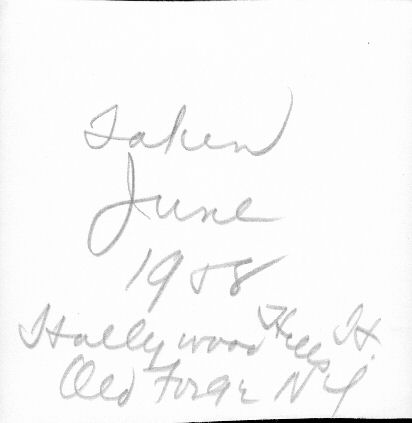 Taken
June
1958
Hollywood Hills H.
Old Forge N Y